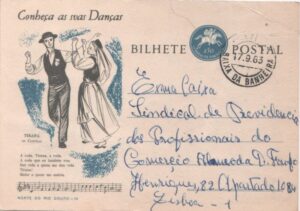 Conheça as suas Danças
BILHETE POSTAL
17.9.63
BAIXA DA BANHEIRA
TIRANA
A roda, Tirana, a roda,
NORTE DO RIO DOURO
Exma Caixa
Sindical de Previdencia
dos Profissionais do
Comercio Alameda D. Afonso
Henriques, 82 Apartado
Lisboa - 1